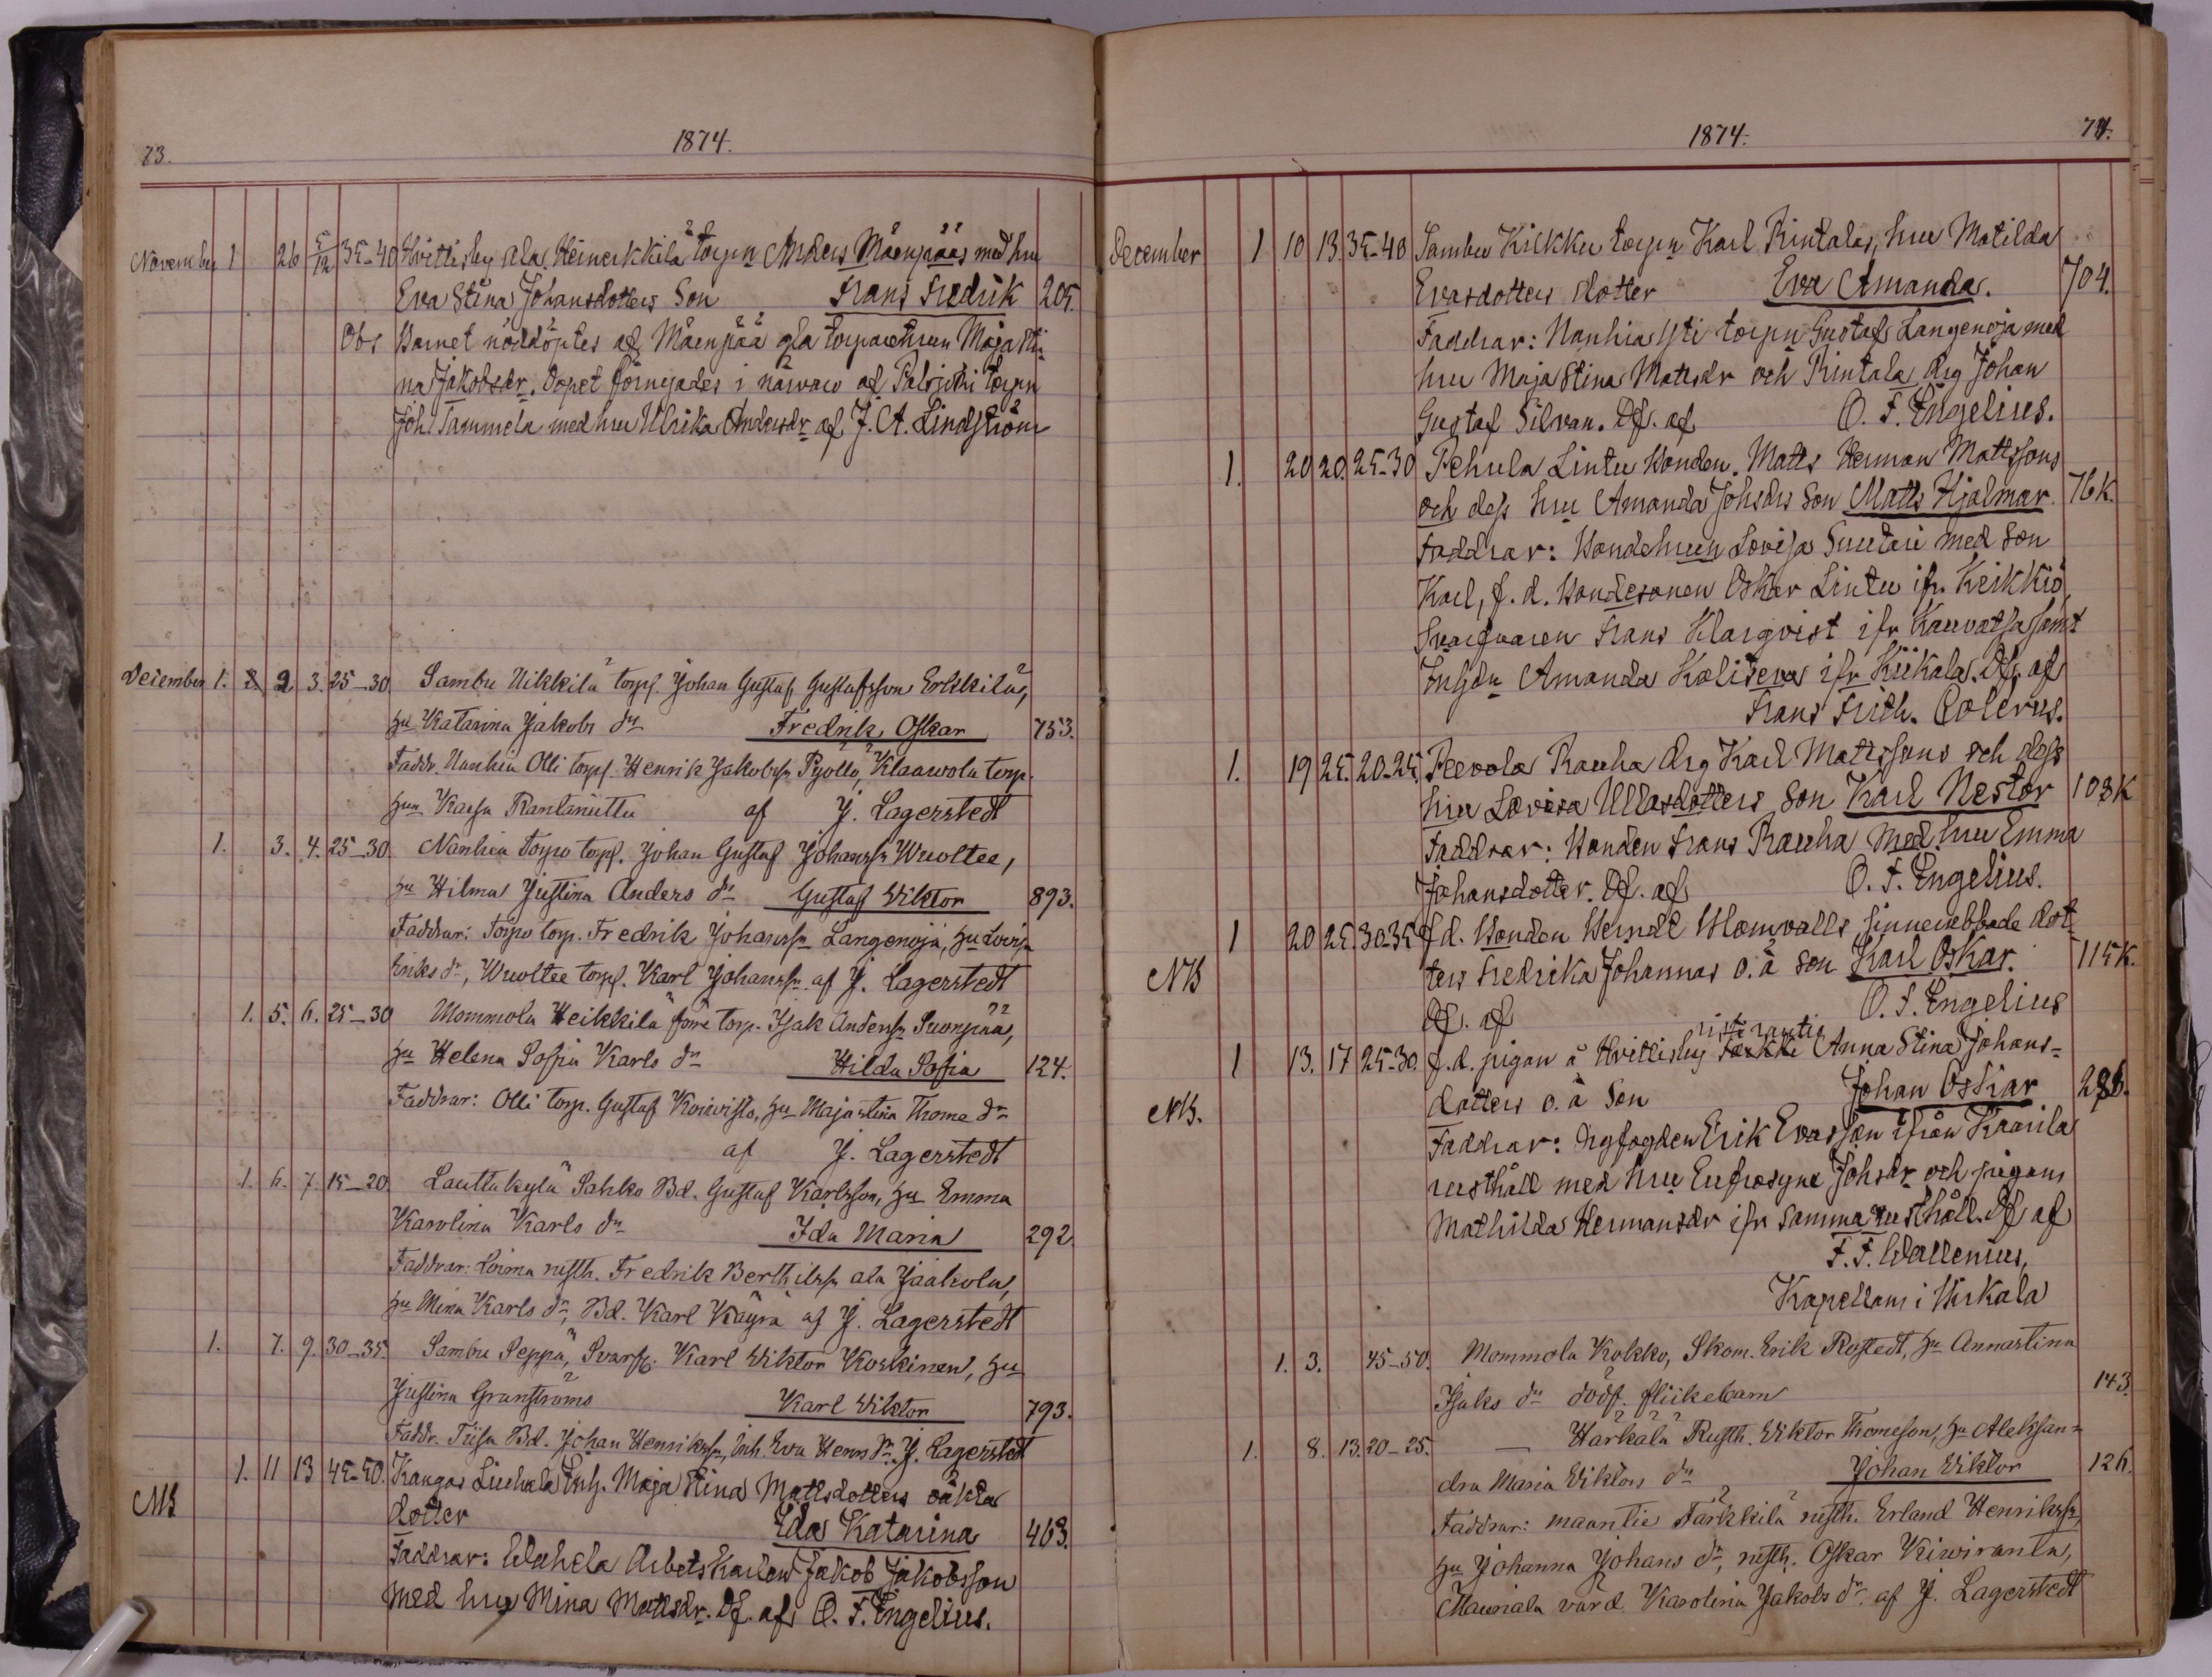 73.
1874.
November 1 26 5/12 35-40 Hvittisby Ala Heinikkilä torpn Anders Mäenpääs med hu
Eva Stina Johansdotters Son Frans Fredrik 205.
Obs Barnet nöddöptes af Mäenpää gla torparehrun Maja Sti-
na Jakobsdr. Dopet förnyades i närvaro af Palojoki torpn
Joh. Tammela med hru Ulrika Andersdr af J. A. Lindström
December 1. 2 3. 25-30. Sambu Uikkilä torpf. Johan Gustaf Gustafsson Erkkilä,
hu Katarina Jakobs dr Fredrik Oskar 753.
Faddr. Nanhia Olli torpf. Henrik Jakobsn Pyölly, Klaawola torp.
hun Kaesa Rantaniittu af J. Lagerstedt
1. 3. 4. 25-30. Nanhia Torpo torpf. Johan Gustaf Johanssn Wuoltee,
hu Hilma Justina Anders dr Gustaf Viktor 893.
Faddrar: Torpo torp. Fredrik Johanssn Langenoja, hu Lovisa
Eriks dr, Wuoltee torpf. Karl Johanssn af J. Lagerstedt
1. 5. 6. 25-30 Mommola Heikkilä förre torp. Isak Anderssn Suonpää,
hu Helena Sofia Karls dr Hilda Sofia 124.
Faddrar: Olli torp. Gustaf Koivisto, hu Majastina Thome dr
af J. Lagerstedt
1. 6. 7. 15-20. Lauttakylä Sahko Bd. Gustaf Karlsson, hu Emma
Karolina Karls dr Ida Maria 292.
Faddrar: Loima rusth. Fredrik Berthilssn ala Jaakola,
hu Mina Karls dr, Bd. Karl Käyrä af J. Lagerstedt
1. 7. 9. 30-35. Sambu Seppä, Svarfv. Karl Viktor Koskinen, hu
Justina Granströms Karl Viktor 793.
Faddr. Tiisa Bd. Johan Henrikssn, Inh. Eva Henrs dr. J. Lagerstedt
NB 1. 11 13 45-50. Kangas Liuhala Inh. Maja Stina Mattsdotters oäkta
dotter Eda Katarina 463.
Faddrar: Wahela Arbetskarlen Jakob Jakobsson
med hru Mina Mattsdr. Df. af O. F. Engelius.
1874.
74.
December 1 10 13. 35-40 Sambu Kikku torpn Karl Rintalas, hru Matilda
Evasdotters dotter Eva Amanda. 704.
Faddrar: Nanhia Yli torpn Gustaf Langenoja med
hru Maja Stina Mattsdr och Rintala drg Johan
Gustaf Silvan. Df. af O. F. Engelius.
1. 20 20. 25-30 Pehula Lintu Bonden Matts Herman Mattssons
och dess hru Amanda Johsdrs Son Matts Hjalmar. 76 K.
Faddrar: Bondehrun Lovisa Suutari med Son
Karl, f. d. Bondesonen Oskar Lintu ifr. Keikkiö,
Svarfvaren Frans Klarqvist ifr Kauvatsa samt
Amanda ifr Kiikala. Df. af
Frans Frith. Colerus.
1. 19 25. 20-25 Peevola Rauha drg Karl Mattssons och dess
hru Lovisa Ullasdotters Son Karl Nestor 103 K
Faddrar: Bonden Frans Rauha med hru Emma
Johansdotter. Df. af O. F. Engelius.
NB 1 20 25 30-35 f d. Bonden Berndt Blomvalls sinnerubbade dot-
ters Fredrika Johannas o. ä Son Karl Oskar. 115 K.
Df. af O. F. Engelius
NB. 1 13. 17 25-30. f. d. pigan å Hvittisby Anna Stina Johans-
dotters o. ä Son Johan Oskar 286.
Faddrar: Drgfogden Erik Evasson ifrån Kaarila
rusthåll med hru Eufrosyne Johsdr och pigan
Mathilda Hermansdr ifr samma rusthåll. Df af
F. F. Wallenius,
Kapellan i Kiikala
1. 3. 45-50. Mommola Kokko, Skom. Erik Rostedt, hu Annastina
Isaks dr dödf. flickebarn 143.
1. 8. 13. 20-25. — Härkälä Rusth. Viktor Thomeson, hu Aleksan-
dra Maria Viktors dr Johan Viktor 126.
Faddrar: maantie Färkkilä rusth. Erland Henrikssn,
hu Johanna Johans dr, rusth. Oskar Kiviranta,
Mauriala värd. Karolina Jakobs dr. af J. Lagerstedt